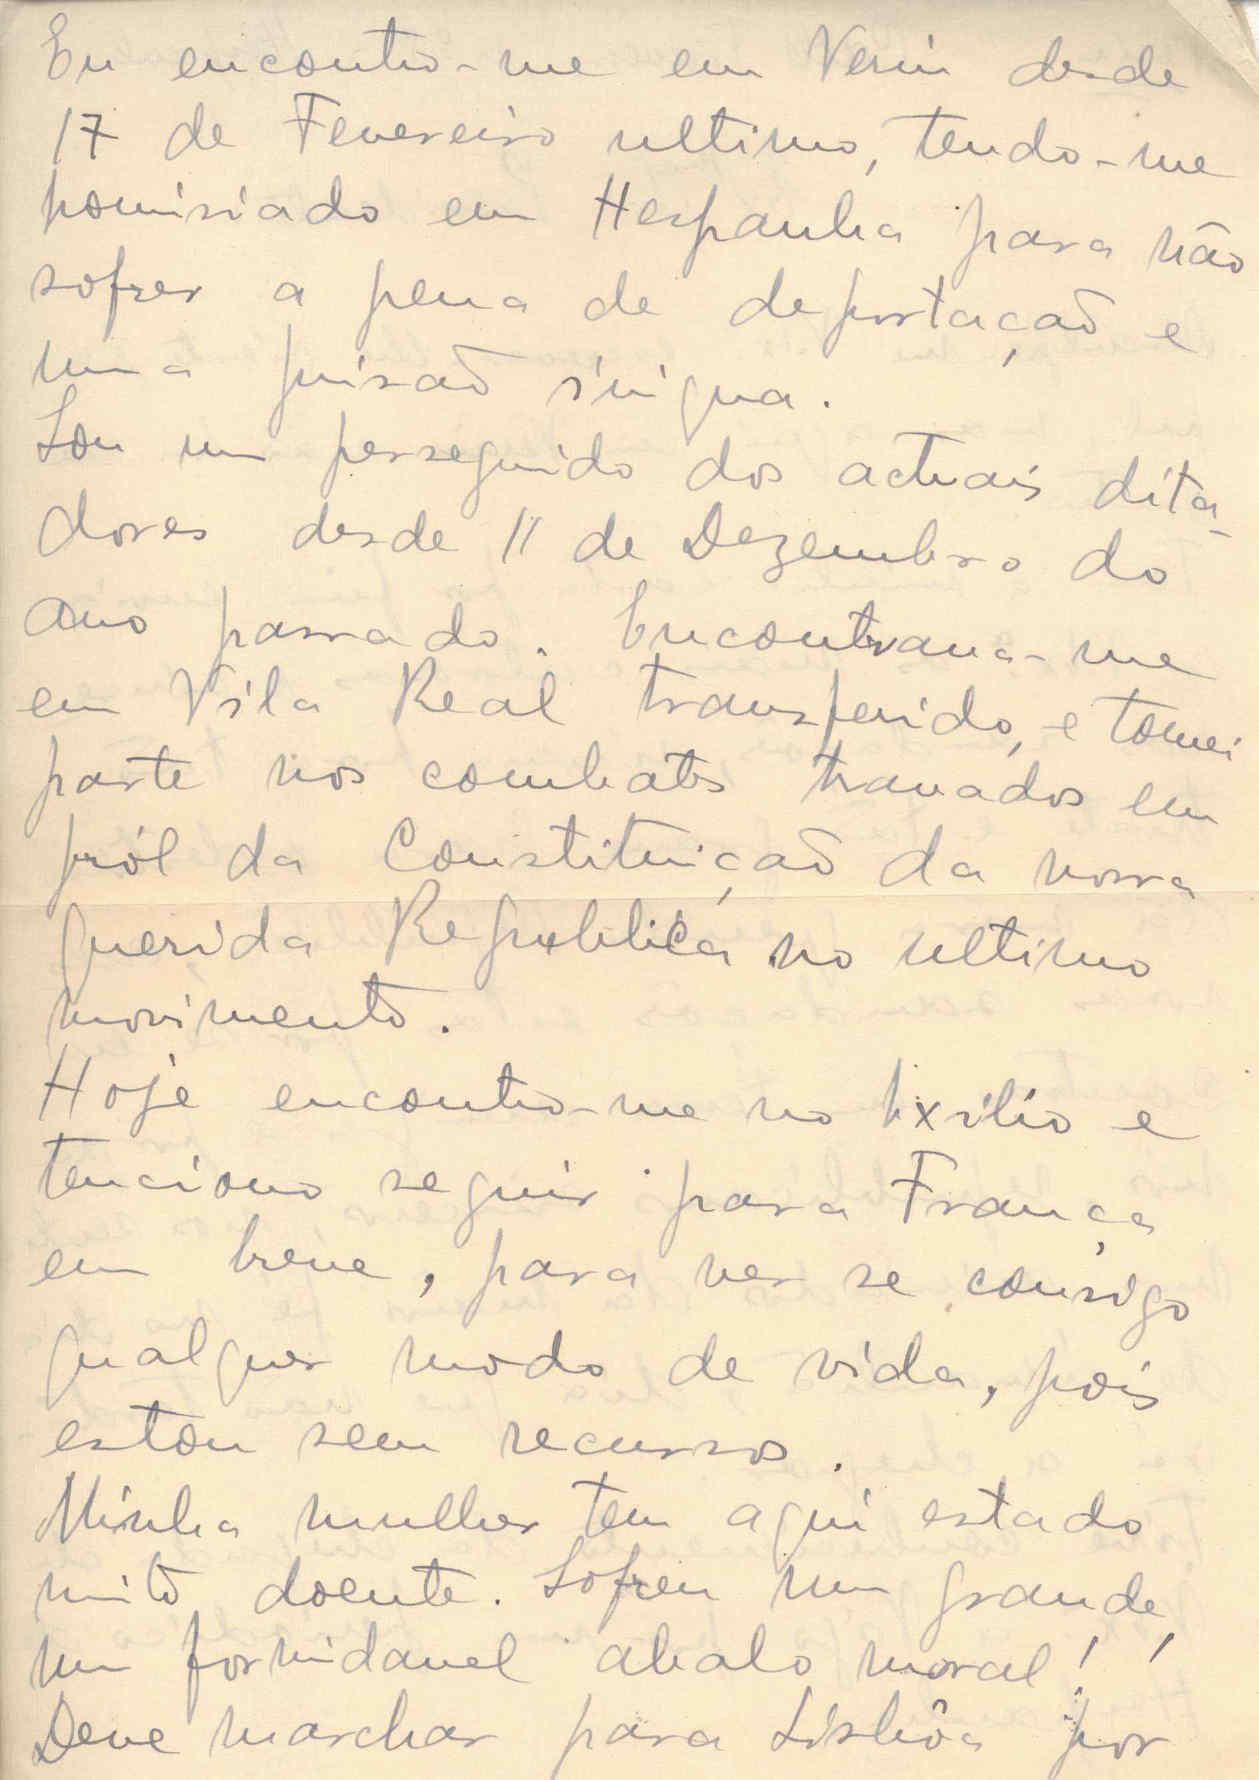 Eu encontro-me em Verin desde
17 de Fevereiro ultimo, tendo-me
homisiado em Hespanha para não
sofrer a pena de deportação e
uma prisão iniqua.
Sou um perseguido dos actuais dita-
dores desde 11 de Dezembro do
ano passado. Encontrava-me
em Vila Real transferido, e tomei
parte nos combates travados em
pról da Constituição da nossa
querida Republica no ultimo
movimento.
Hoje encontro-me no Exilio e
tenciono seguir para França
em breve, para ver se consigo
qualquer modo de vida, pois
estou sem recursos.
Minha mulher tem aqui estado
muito doente. Sofreu um grande,
um formidavel abalo moral!
Deve marchar para Lisbôa por